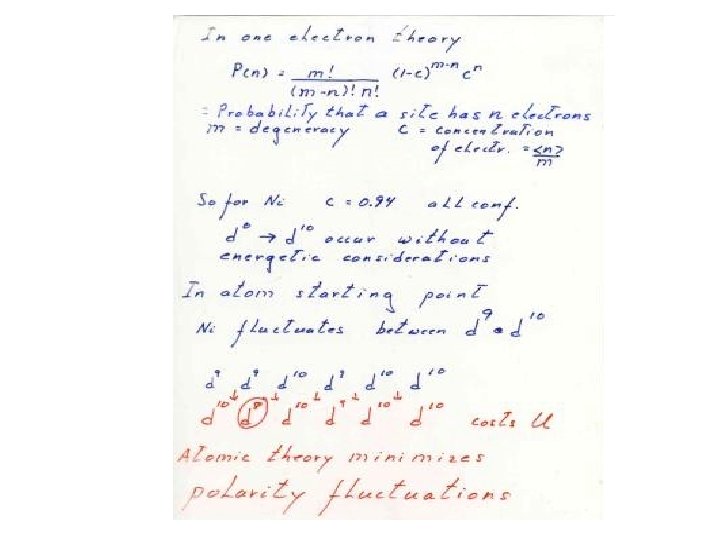 In one electron theory
P(n) = m! / (m-n)! n! (1-c)^m-n c^n
= Probability that a site has n electrons
m = degeneracy c = concentration
of electr. = <n>/m
So for Ni c = 0.94 all conf.
d^0 → d^10 occur without
energetic considerations
In atom starting point
Ni fluctuates between d^9 • d^10
d^9 d^9 d^10 d^9 d^10 d^10
d^10 ↓ d^8 ↓ d^10 ↓ d^9 ↓ d^10 ↓ d^10 costs U
Atomic theory minimizes
polarity fluctuations